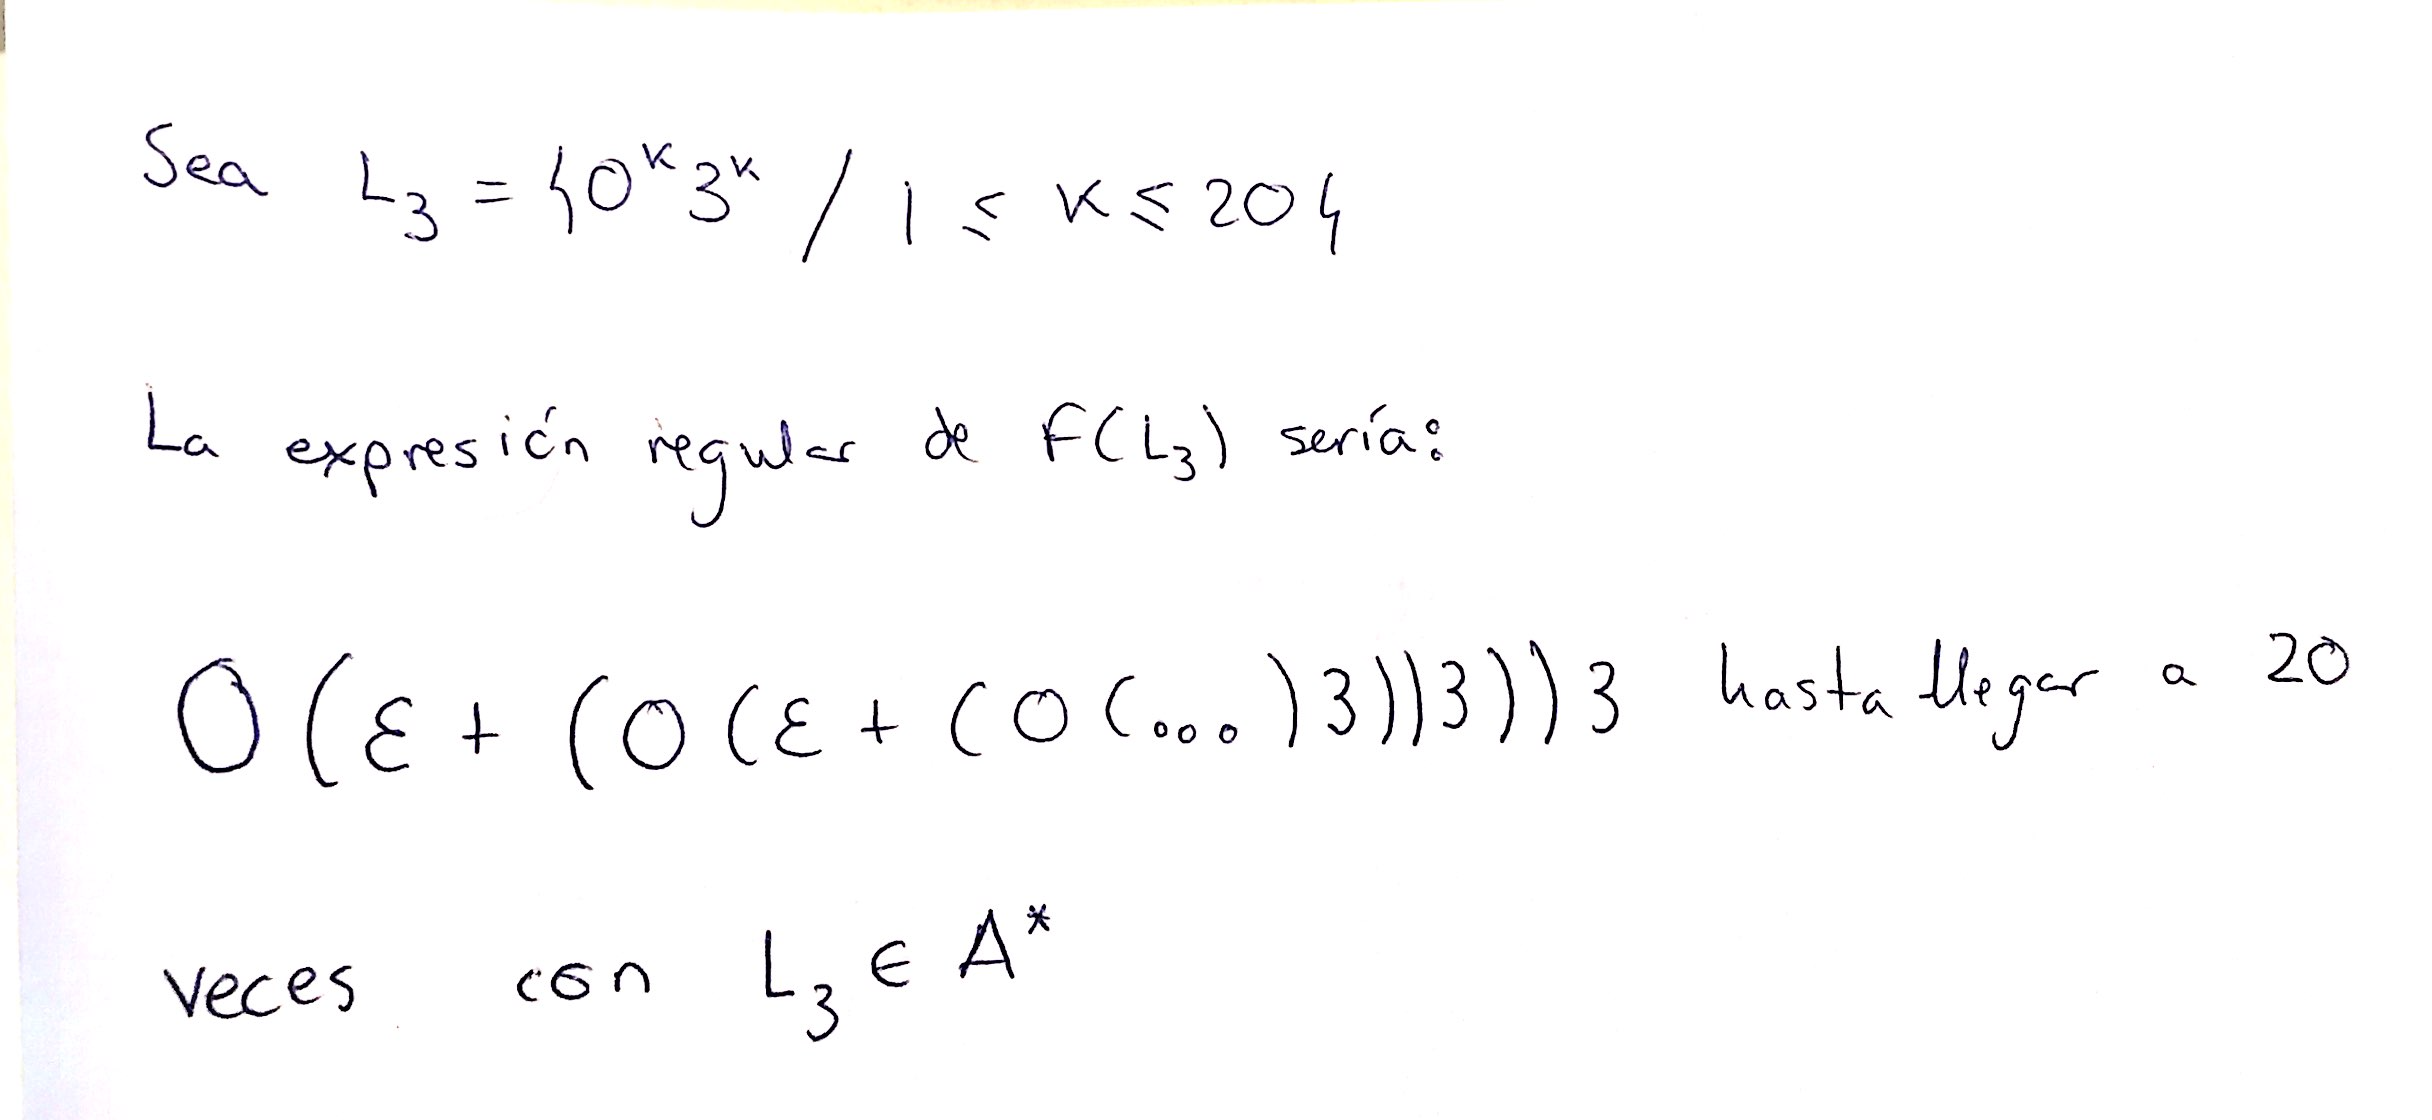 Sea L₃ = {0ᵏ3ᵏ / 1 ≤ k ≤ 20}
La expresión regular de F(L₃) sería:
0(ε + (0(ε + (0(...)3))3)))3 hasta llegar a 20
veces con L₃ ∈ A*